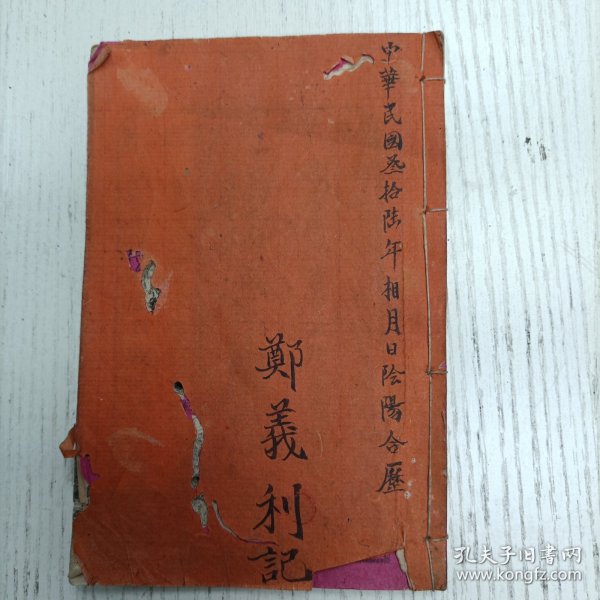 中華民國叁拾陸年相月日陰陽合歷
鄭義利記
孔夫子旧书网
www.kongfz.com